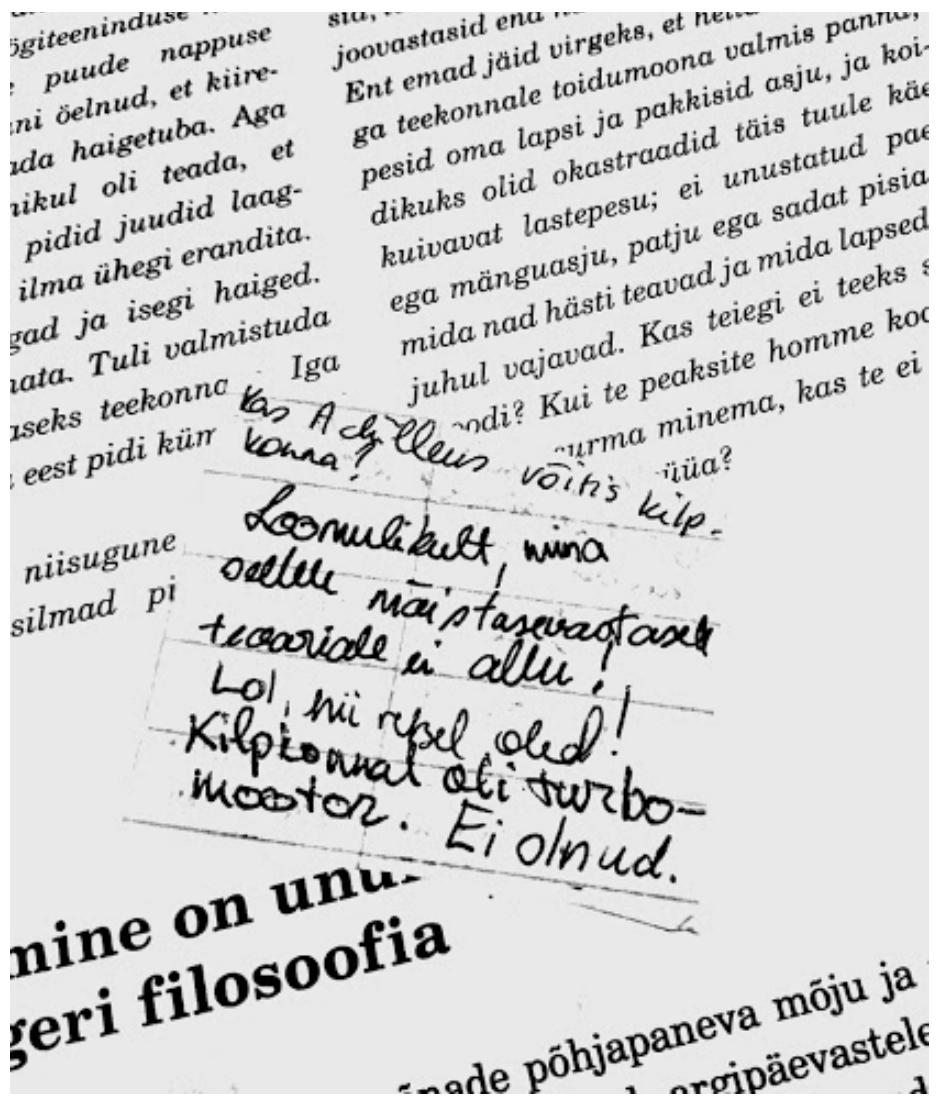 ögiteeninduse
puude nappuse
ni öelnud, et kiire-
ada haigetuba. Aga
nikul oli teada, et
pidid juudid laag-
ilma ühegi erandita.
gad ja isegi haiged.
nata. Tuli valmistuda
aseks teekonna
eest pidi küm
niisugune
silmad pi
joovastasid end
Ent emad jäid virgeks, et
ga teekonnale toidumoona valmis panna,
pesid oma lapsi ja pakkisid asju, ja koi-
dikuks olid okastraadid täis tuule käe
kuivavat lastepesu; ei unustatud pae
ega mänguasju, patju ega sadat pisia
mida nad hästi teavad ja mida lapsed
juhul vajavad. Kas teiegi ei teeks s
Iga oodi? Kui te peaksite homme koo
surma minema, kas te ei
üüa?
Kas Achilleus võitis kilp-
konna?
Loomulikult, mina
sellele
teooriale ei allu!
Lol, nii repsel oled!
Kilpkonnal oli turbo-
mootor. Ei olnud.
mine on unu
geri filosoofia
põhjapaneva mõju ja
argipäevastele